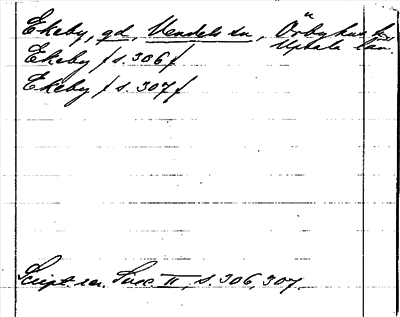 Ekeby, gd, Vendels sn, Örbyhus hd
Uppsala län.
Ekeby / s. 306 /
Ekeby / s. 307 /
Script. rer. Suec. II, s. 306, 307.